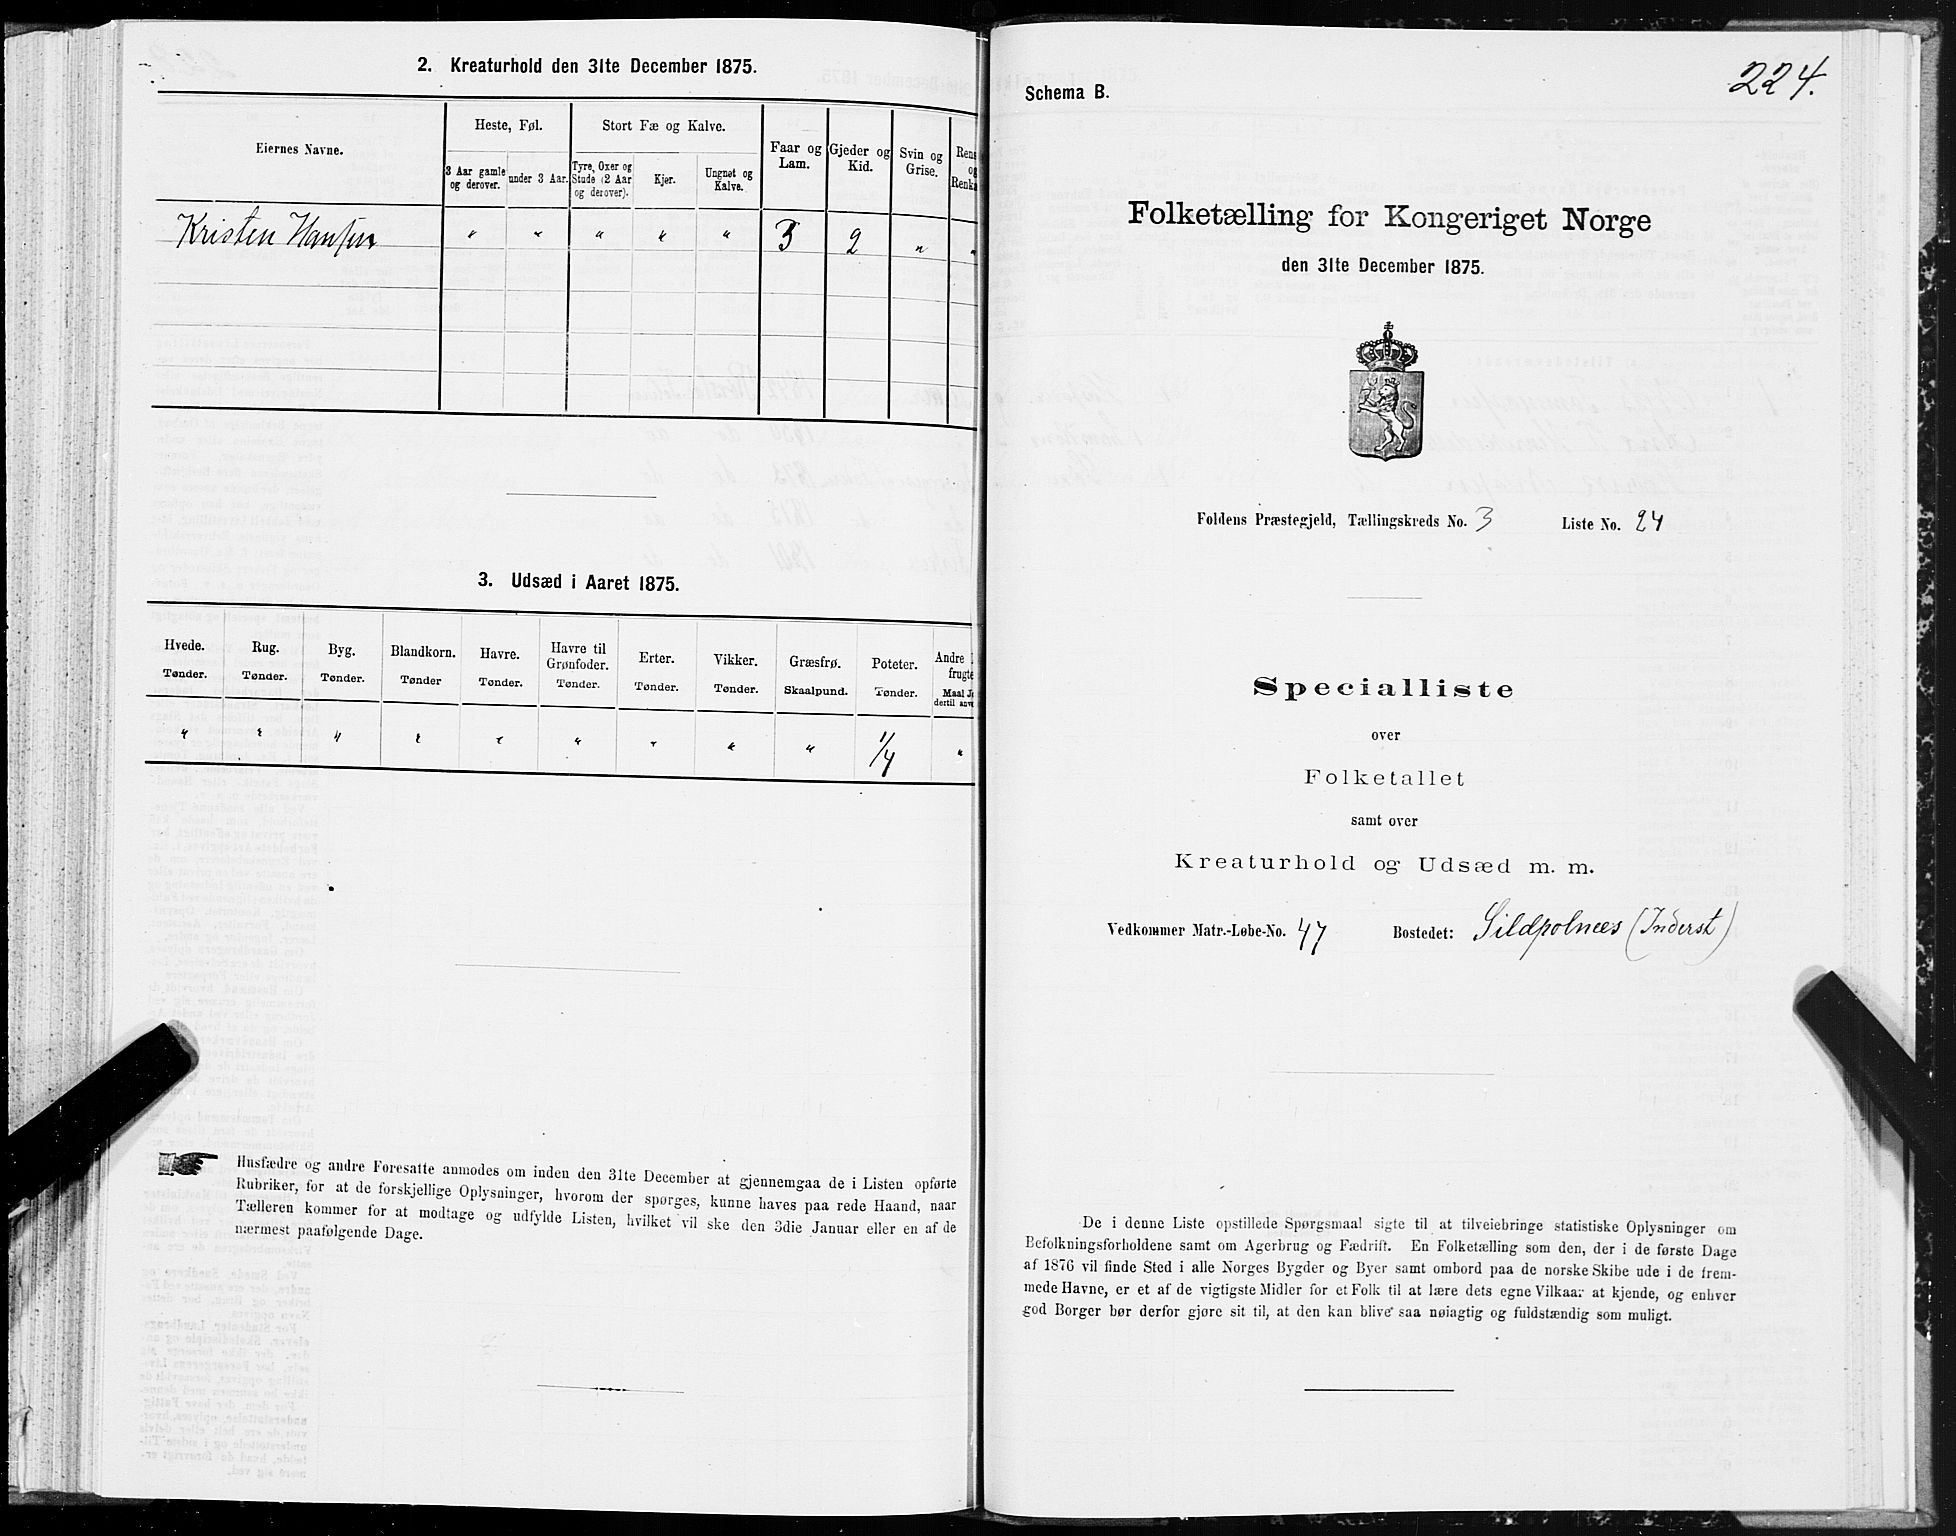 2. Kreaturhold den 31te December 1875.
Eiernes Navne.
Heste, Føl.
Stort Fæ og Kalve.
Faar og Lam.
Gjeder og Kid.
Svin og Grise.
Rens og
3 Aar gamle og derover.
under 3 Aar.
Tyre, Oxer og Stude (2 Aar og derover).
Kjør.
Ungnøt og Kalve.
Kristen Hansen " " " " " 3 2 " "
3. Udsæd i Aaret 1875.
Hvede. Rug. Byg. Blandkorn. Havre. Havre til Grønfoder. Erter. Vikker. Græsfrø. Poteter. Andre
Tønder. Tønder. Tønder. Tønder Tønder. Tønder. Tønder. Tønder. Skaalpund. Tønder. Maal
" " " " " " " " " 1/4 "
Husfædre og andre Foresatte anmodes om inden den 31te December at gjennemgaa de i Listen opførte
Rubriker, for at de forskjellige Oplysninger, hvorom der spørges, kunne haves paa rede Haand, naar
Tælleren kommer for at modtage og udfylde Listen, hvilket vil ske den 3die Januar eller en af de
nærmest paafølgende Dage.
224.
Schema B.
Folketælling for Kongeriget Norge
den 31te December 1875.
Foldens Præstegjeld, Tællingskreds No. 3 Liste No. 24
Specialliste
over
Folketallet
samt over
Kreaturhold og Udsæd m. m.
Vedkommer Matr.-Løbe-No. 47 Bostedet: Sildpolnæs (Inderst)
De i denne Liste opstillede Spørgsmaal sigte til at tilveiebringe statistiske Oplysninger om
Befolkningsforholdene samt om Agerbrug og Fædrift. En Folketælling som den, der i de første Dage
af 1876 vil finde Sted i alle Norges Bygder og Byer samt ombord paa de norske Skibe ude i de frem-
mede Havne, er et af de vigtigste Midler for et Folk til at lære dets egne Vilkaar at kjende, og enhver
god Borger bør derfor gjøre sit til, at den kan blive saa nøiagtig og fuldstændig som muligt.